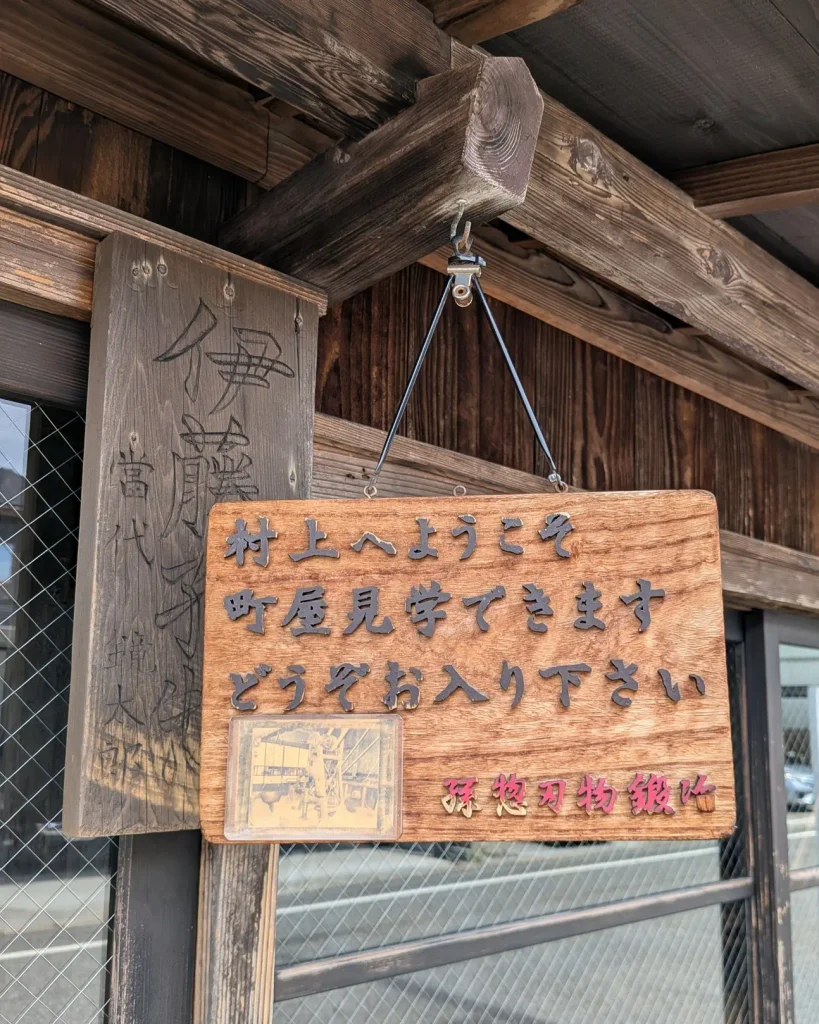 伊藤孫
當代
太郎
村上へようこそ
町屋見学できます
どうぞお入り下さい
孫惣刃物鍛冶